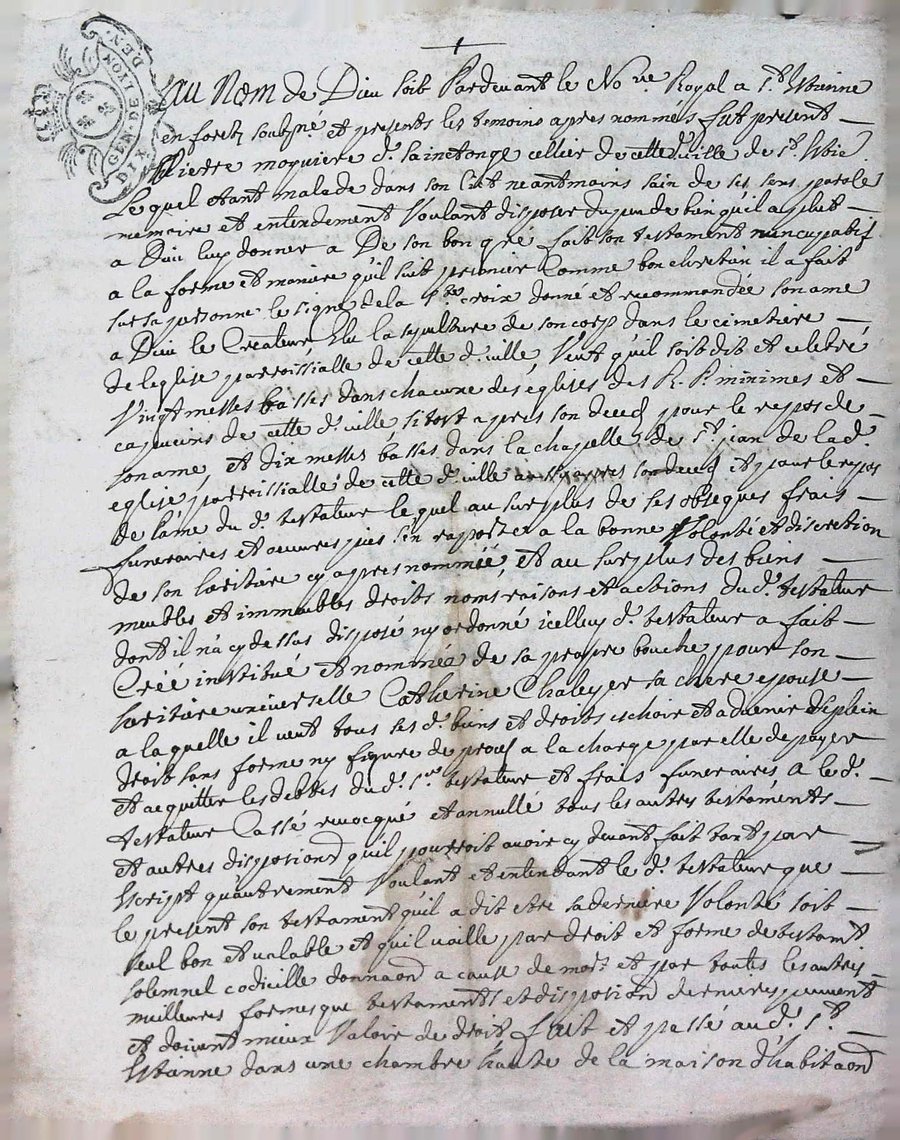 GEN. DE LION
DIX DEN.
Au Nom de Dieu soit Pardevant le No.re Royal a S.t Etienne
en foretz soubzné et presents les temoins apres nommés fut present
Pierre moquiere d. sainctonge cellier de cette d. ville de S.t Etie
Lequel etant malade dans son lict neantmoins sain de ses sens parole
memoire et entendement Voulant disposer du peu de bien quil a plut
a Dieu luy donner a De son bon gré fait son testament nuncupatif
a la forme et maniere qu'il suit premier Comme bon chretien il a fait
sur sa personne le signe de la S.te croix donné et recommandée son ame
a Dieu le Createur Elu la sepulture de son corp dans le cimetiere
de leglise parroissialle de cette d. ville Veut qu'il soit dit et celebré
Vingt messes basses dans chacune des eglises des R. P. minimes et
capucins de cette d. ville sitost apres son deced pour le repos de
son ame, et dix messes basses dans la chapelle de S.t jean de lad.
eglise parroissialle de cette d. ville son deced et pour le repos
de l'ame du d. testateur lequel au surplus de ses obseques frais
funeraires et oeuvres pies s'en raporter a la bonne Volonté et discretion
de son heritiere cy apres nommée, et au surplus des biens
meubles et immeubles droits noms raisons et actions du d. testateur
dont il n'a cy dessus disposé ny ordonné icelluy d. testateur a fait
Créé institué et nommée de sa propre bouche pour son
heritiere universelle Catherine Chaleyer sa chere epouse
a laquelle il veut tous ses d. biens et droits eschoir et advenir de plein
droit sans forme ny figure de proces a la charge par elle de payer
et acquitter les debtes du d. s.r testateur et frais funeraires A le d.
testateur Cassé revocqué et annullé tous les autres testaments
et autres dispotions qu'il pourroit avoir cy devant fait tant par
Escript quautrement Voulant et entendant le d. testateur que
le present son testament qu'il a dit etre sa derniere Volonté soit
seul bon et valable et quil vaille par droit et forme de testamt
solemnel codicille donnaond a cause de mort et par toutes les autres
meilleures formes que testaments et dispotiond dernieres peuvent
et doivent mieux Valoir de droit fait et passé au d. S.t
Etienne dans une chambre haute de la maison d'habitaond